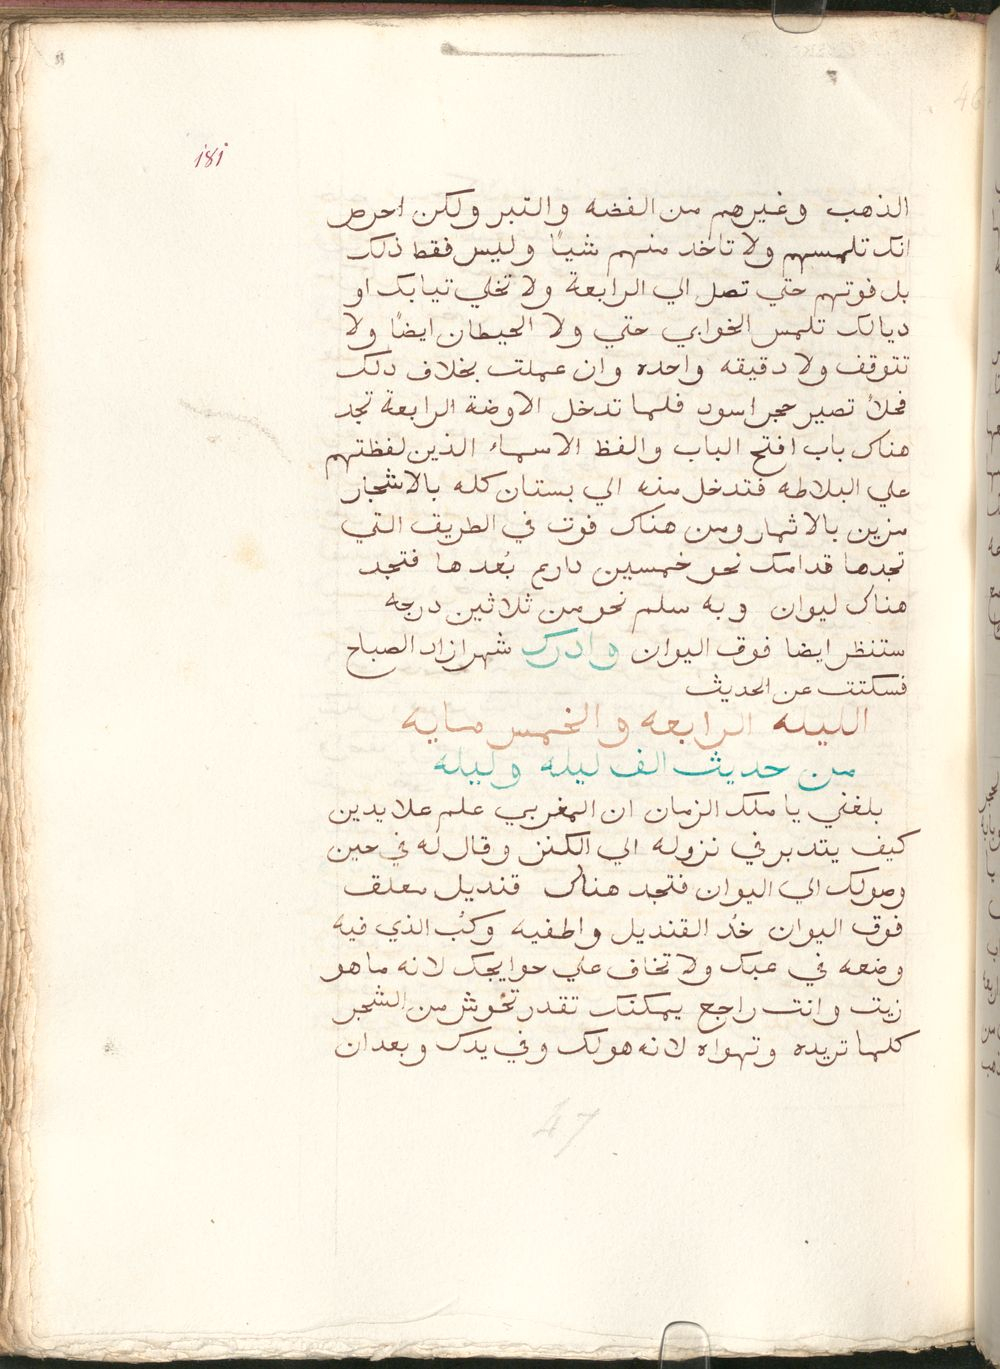 181
الذهب وغيرهم من الفضه والتبر ولكن احرص
انك تلمسهم ولا تاخد منهم شياً وليس فقط ذلك
بل فوتهم حتي تصل الي الرابعة ولا تخلي تيابك او
ديالك تلمس الخوابي حتي ولا الحيطان ايضاً ولا
تتوقف ولا دقيقه واحده وان عملت بخلاف دلك
فحلاً تصير حجر اسود فلما تدخل الاوضة الرابعة تجد
هناك باب افتح الباب والفظ الاسماء الذين لفظتهم
علي البلاطه فتدخل منه الي بستان كله بالاشجار
مزين بالاثمار ومن هناك فوت في الطريق التي
تجدها قدامك نحو خمسين داريم بُعدها فتجد
هناك ليوان وبه سلم نحو من ثلاثين درجه
ستنظر ايضا فوق اليوان وادرك شهرازاد الصباح
فسكتت عن الحديث
الليله الرابعه والخمس مايه
من حديث الف ليله وليله
بلغني يا ملك الزمان ان المغربي علم علا يدين
كيف يتدبر في نزوله الي الكنز وقال له في حين
وصولك الي اليوان فتجد هناك قنديل معلق
فوق اليوان خُد القنديل واطفيه وكُب الذي فيه
وضعه في عبك ولا تخاف علي حوايجك لانه ما هو
زيت وانت راجع يمكنك تقدر تحُوش من الشجر
كلما تريده وتهواه لانه هو لك وفي يدك وبعد ان
47